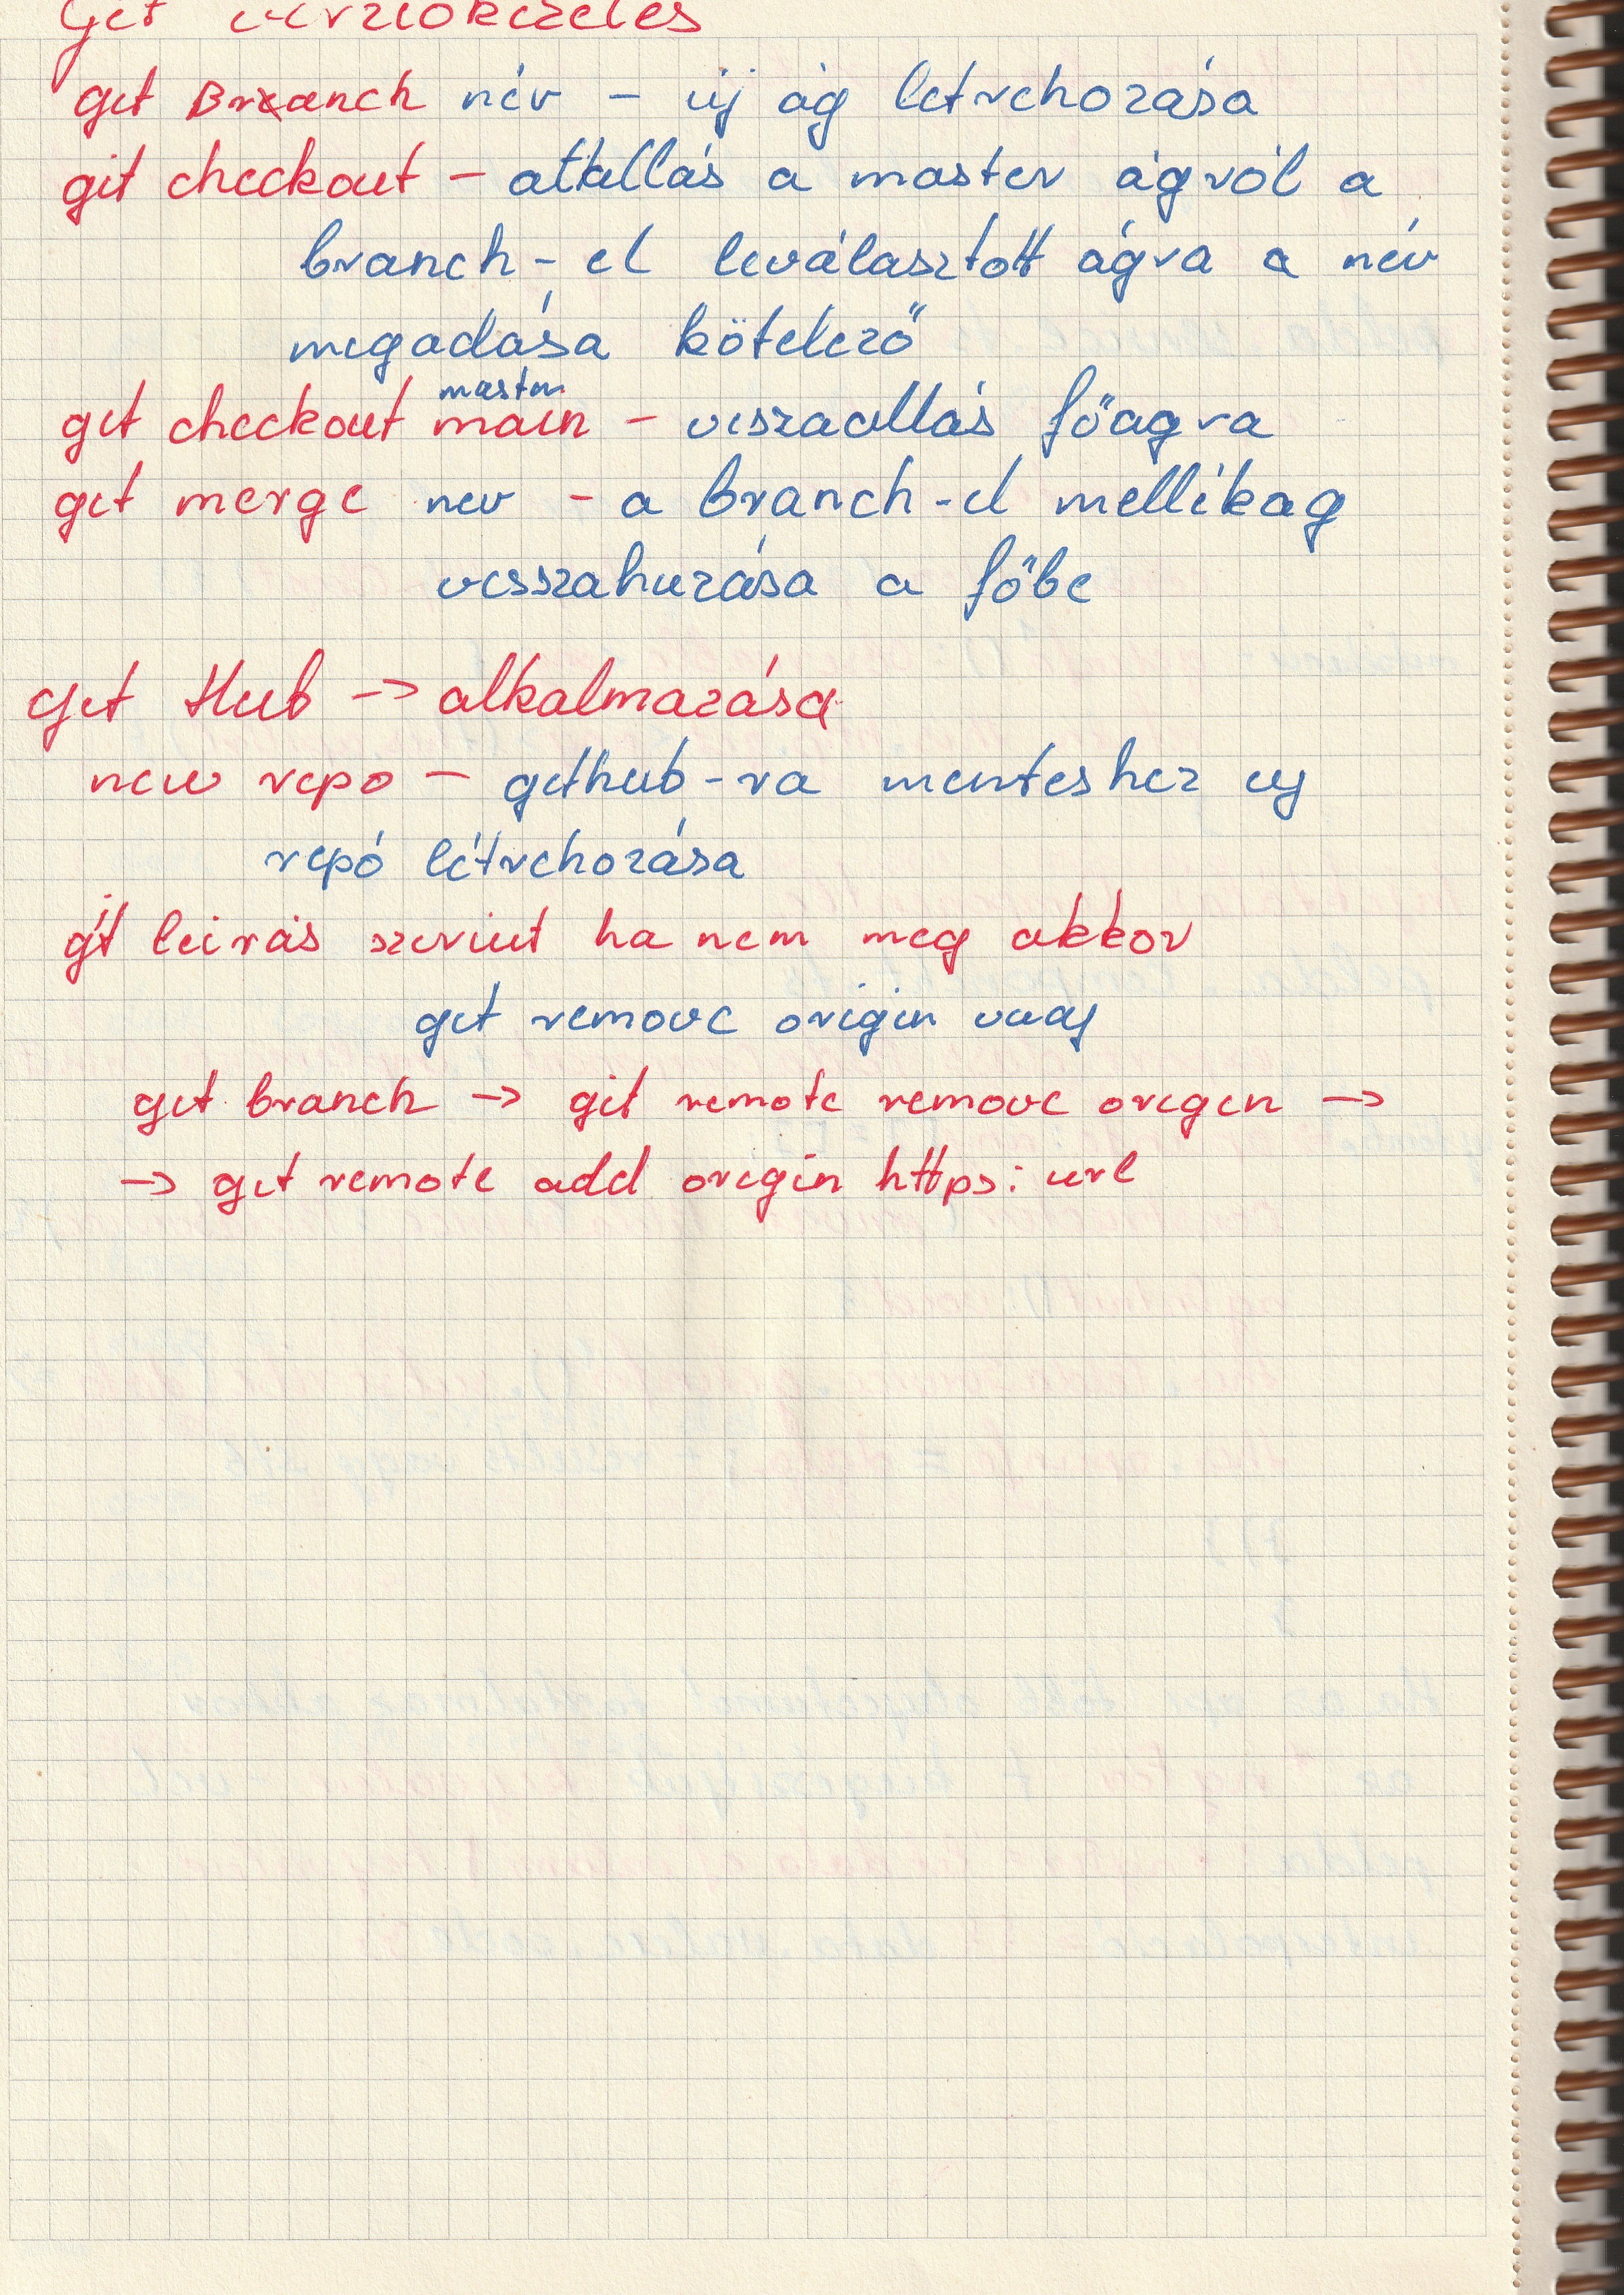 Git verziókezelés
git Branch név - új ág létrehozása
git checkout - átállás a master ágról a
branch-el leválasztott ágra a név
megadása kötelező
master
git checkout main - viszaallás főagra
git merge nev - a branch-el mellékag
visszahuzása a főbe
Git Hub -> alkalmazása
new repo - github-ra menteshez uj
repó létrehozása
git leirás szerint ha nem meg akkor
git remove origin vagy
git branch -> git remote remove origin ->
-> git remote add origin https: url